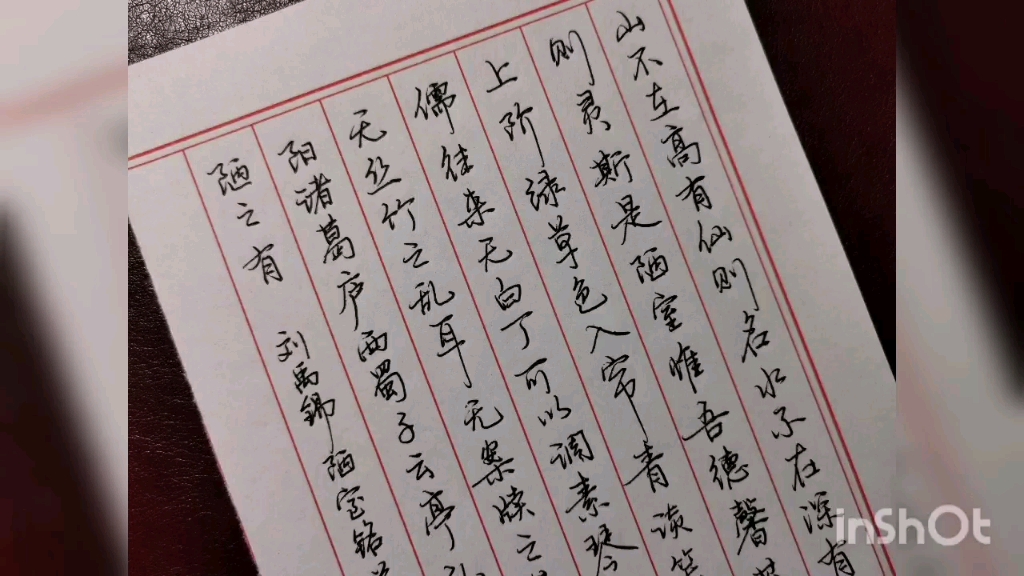 山不在高有仙则名水不在深有
则灵斯是陋室惟吾德馨
上阶绿草色入帘青谈笑
儒往来无白丁可以调素琴
无丝竹之乱耳无案牍之
阳诸葛庐西蜀子云亭
陋之有 刘禹锡陋室铭
InShOt